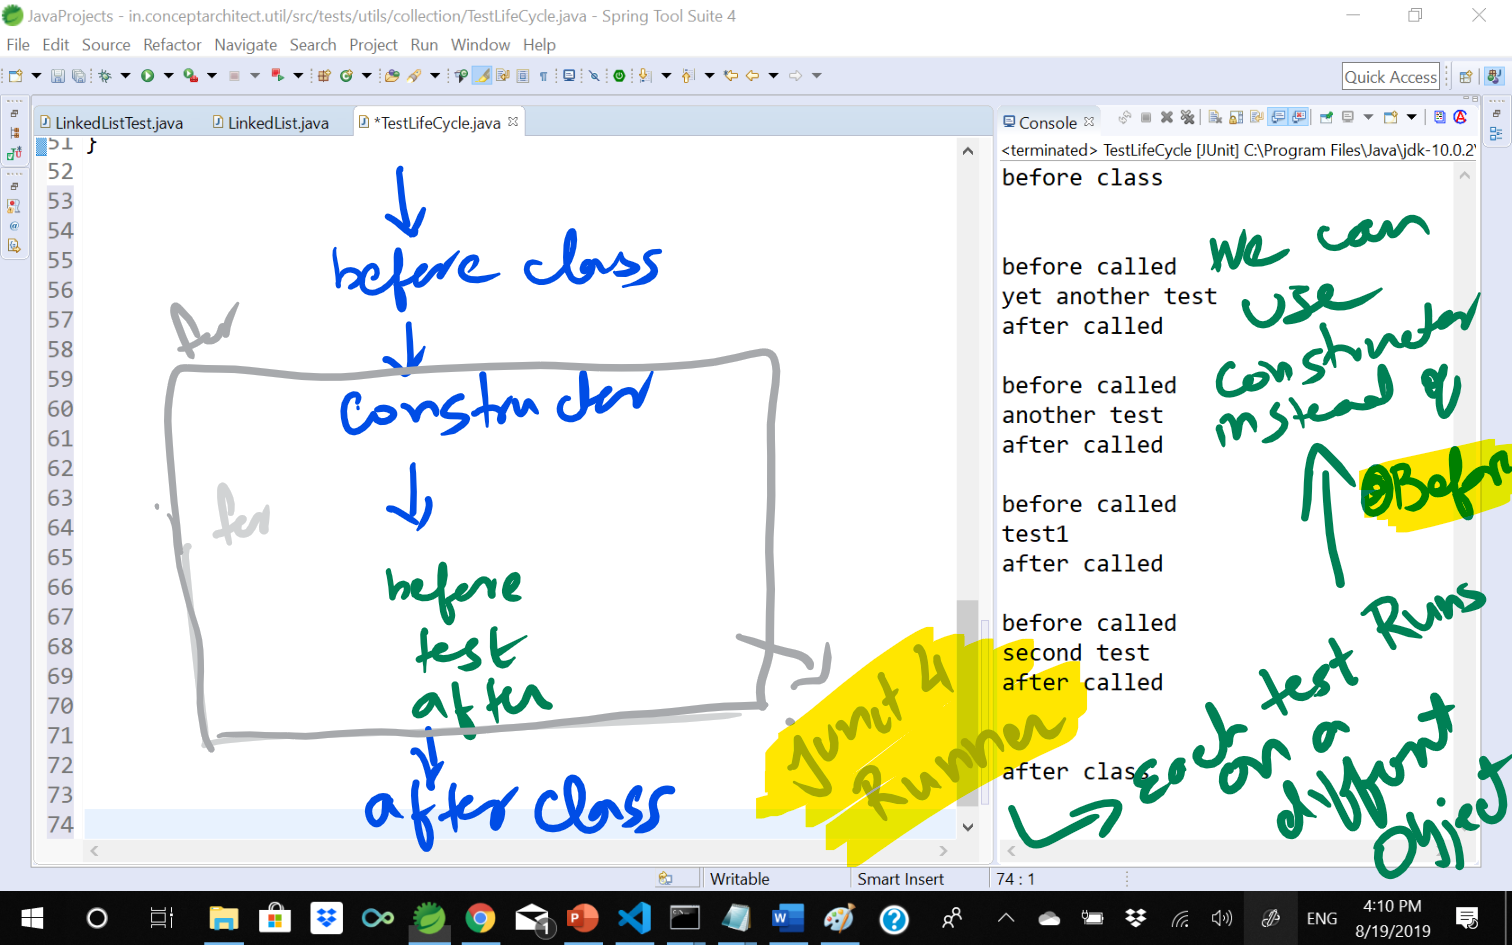 JavaProjects - in.conceptarchitect.util/src/tests/utils/collection/TestLifeCycle.java - Spring Tool Suite 4
File Edit Source Refactor Navigate Search Project Run Window Help
Quick Access
LinkedListTest.java LinkedList.java *TestLifeCycle.java
51 }
52
53
54
55
56
57
58
59
60
61
62
63
64
65
66
67
68
69
70
71
72
73
74
before class
constructor
before
test
after
after class
Junit 4
Runner
Console
<terminated> TestLifeCycle [JUnit] C:\Program Files\Java\jdk-10.0.2\
before class
before called
yet another test
after called
before called
another test
after called
before called
test1
after called
before called
second test
after called
after class
We can
use
constructor
instead of
@Before
Each test Runs
on a
different
object
Writable Smart Insert 74 : 1
1
ENG
4:10 PM
8/19/2019